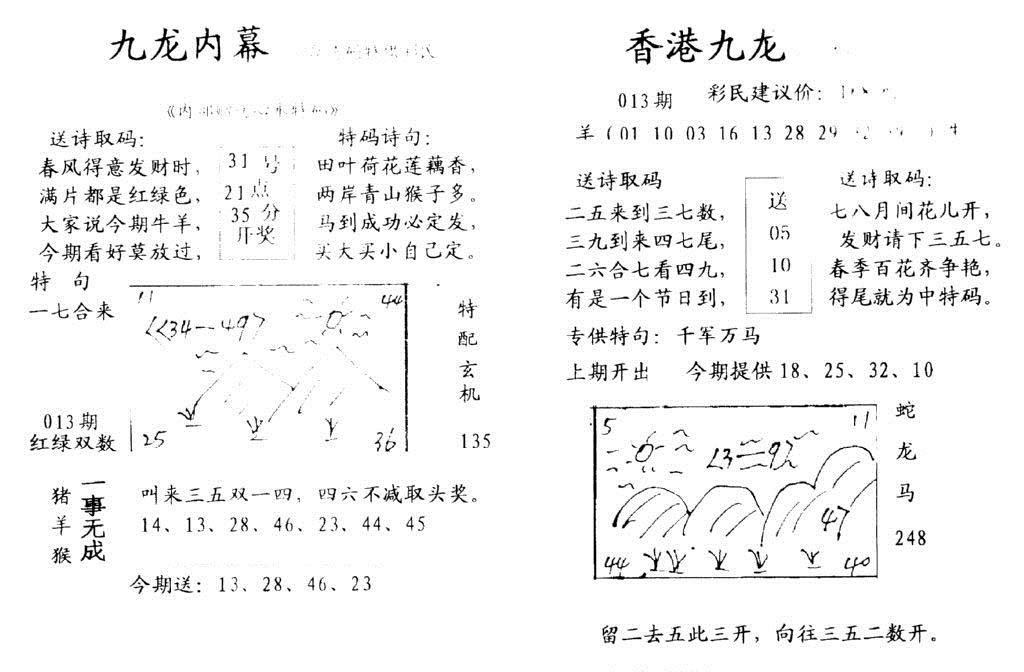 九龙内幕
送诗取码：
春风得意发财时，
满片都是红绿色，
大家说今期牛羊，
今期看好莫放过，
31号
21点
35分
开奖
特码诗句：
田叶荷花莲藕香，
两岸青山猴子多。
马到成功必定发，
买大买小自己定。
特句
一七合来
013期
红绿双数
11
44
<<34—49>
25
36
特配玄机
135
猪羊猴
一事无成
叫来三五双一四，四六不减取头奖。
14、13、28、46、23、44、45
今期送：13、28、46、23
香港九龙
013期
彩民建议价：
羊（01 10 03 16 13 28 29
送诗取码
二五来到三七数，
三九到来四七尾，
二六合七看四九，
有是一个节日到，
送
05
10
31
送诗取码：
七八月间花儿开，
发财请下三五七。
春季百花齐争艳，
得尾就为中特码。
专供特句：千军万马
上期开出 今期提供18、25、32、10
5
11
47
44
40
蛇龙马
248
留二去五此三开，向往三五二数开。